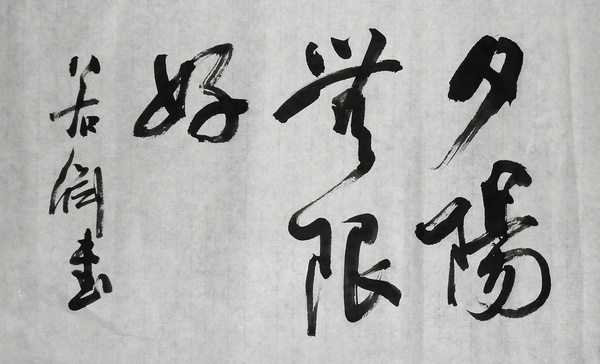 夕陽
無限
好
若書